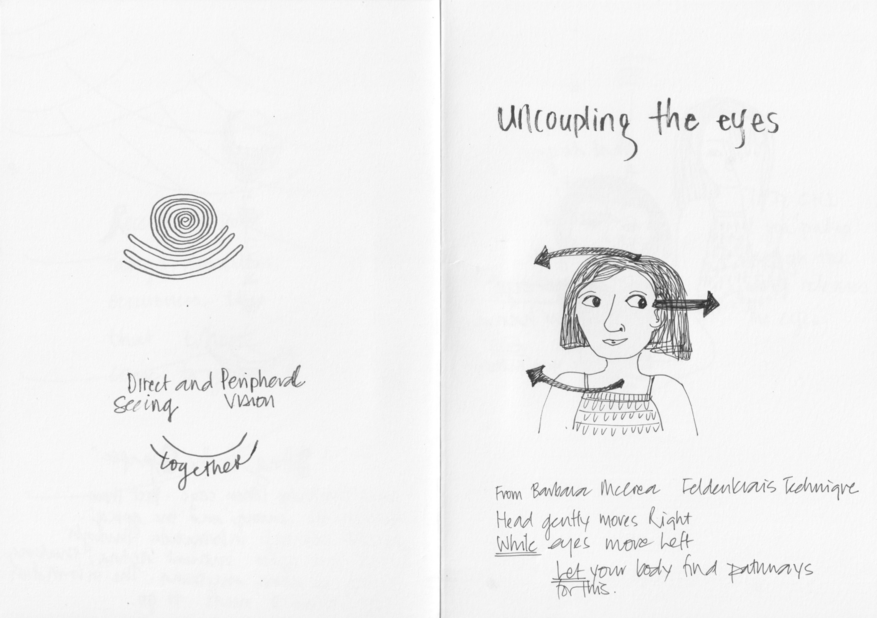 Direct and Peripheral
Seeing Vision
together
Uncoupling the eyes
From Barbara McCrea Feldenkrais Technique
Head gently moves Right
While eyes move Left
Let your body find pathways
for this.